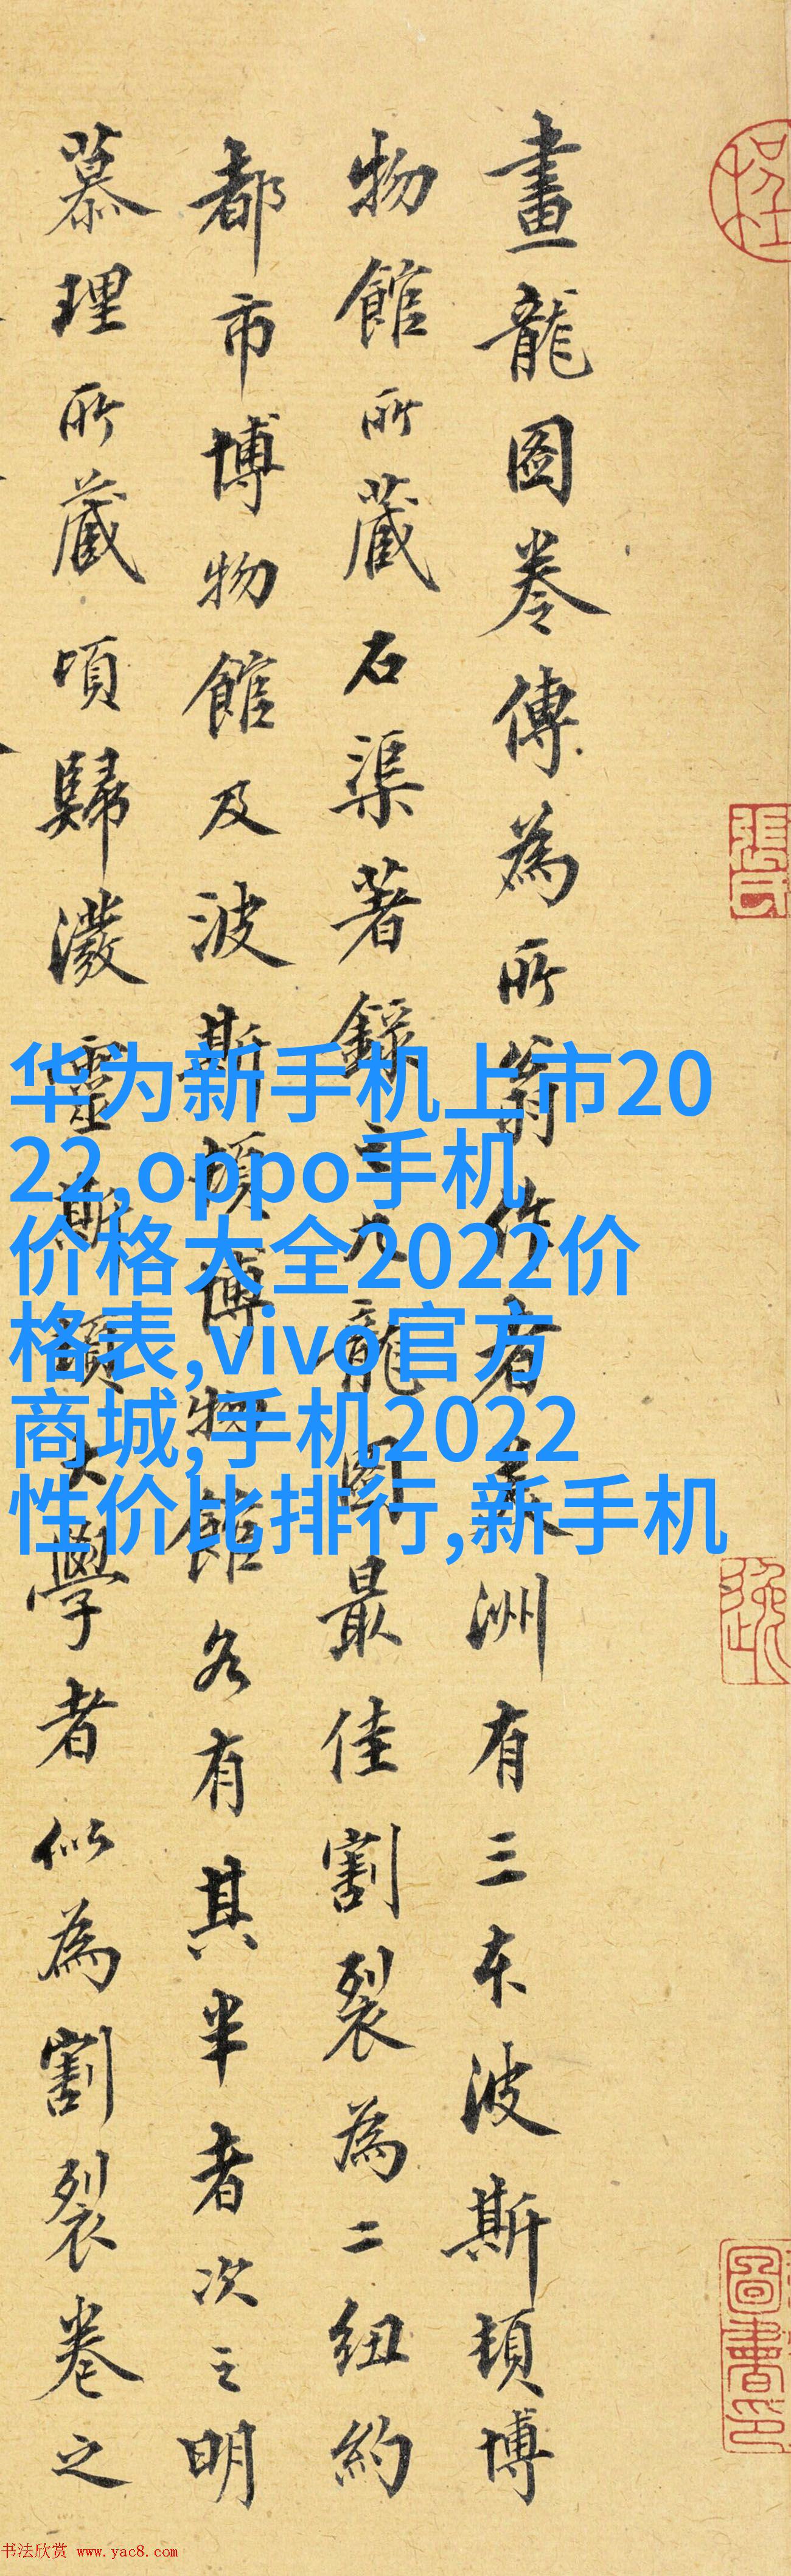 畫龍圖卷傳為所翁作者美洲有三本波斯頓博
物館所藏石渠著錄之九龍圖最佳割裂為二紐約
都市博物館及波斯頓博物館各有其半者次之明
慕理所藏頃歸潑靈斯頓大學者似為割裂卷之
华为新手机上市20
22,oppo手机
价格大全2022价
格表,vivo官方
商城,手机2022
性价比排行,新手机
張氏
圖書印
书法欣赏 www.yac8.com